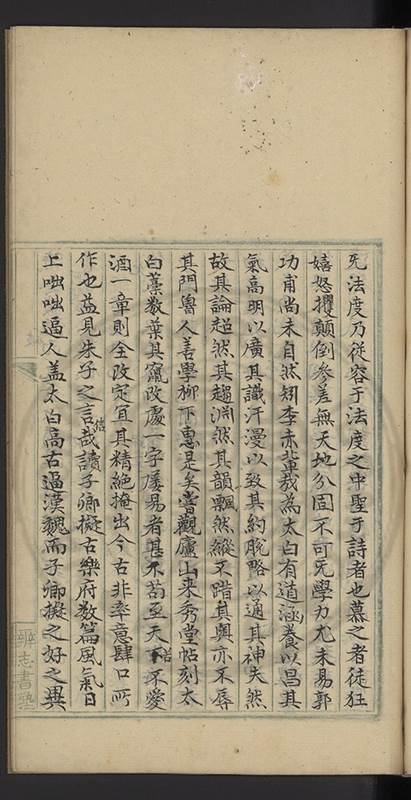 旡法度乃從容于法度之中聖于詩者也慕之者徒狂
嬉怒攫顛倒參差無天地分固不可旡學力尤未易郭
功甫尚未自然矧李赤軰哉為太白有道涵養以昌其
氣高明以廣其識汗漫以致其約脫略以通其神失然
故其論超然其趨淵然其韻飄然縱不踏其奥亦不辱
其門魯人善學柳下惠是矣嘗觀廬山来秀堂帖刻太
白藁数葉其竄改處一字屡易者甚不苟至天下不愛
酒一章則全改定宜其精絶掩出今古非率意肆口所
作也益見朱子之言信哉讀子卿擬古樂府数篇風氣日
上咄咄逼人盖太白高古逼漢魏而子卿擬之好之異
辨志書塾